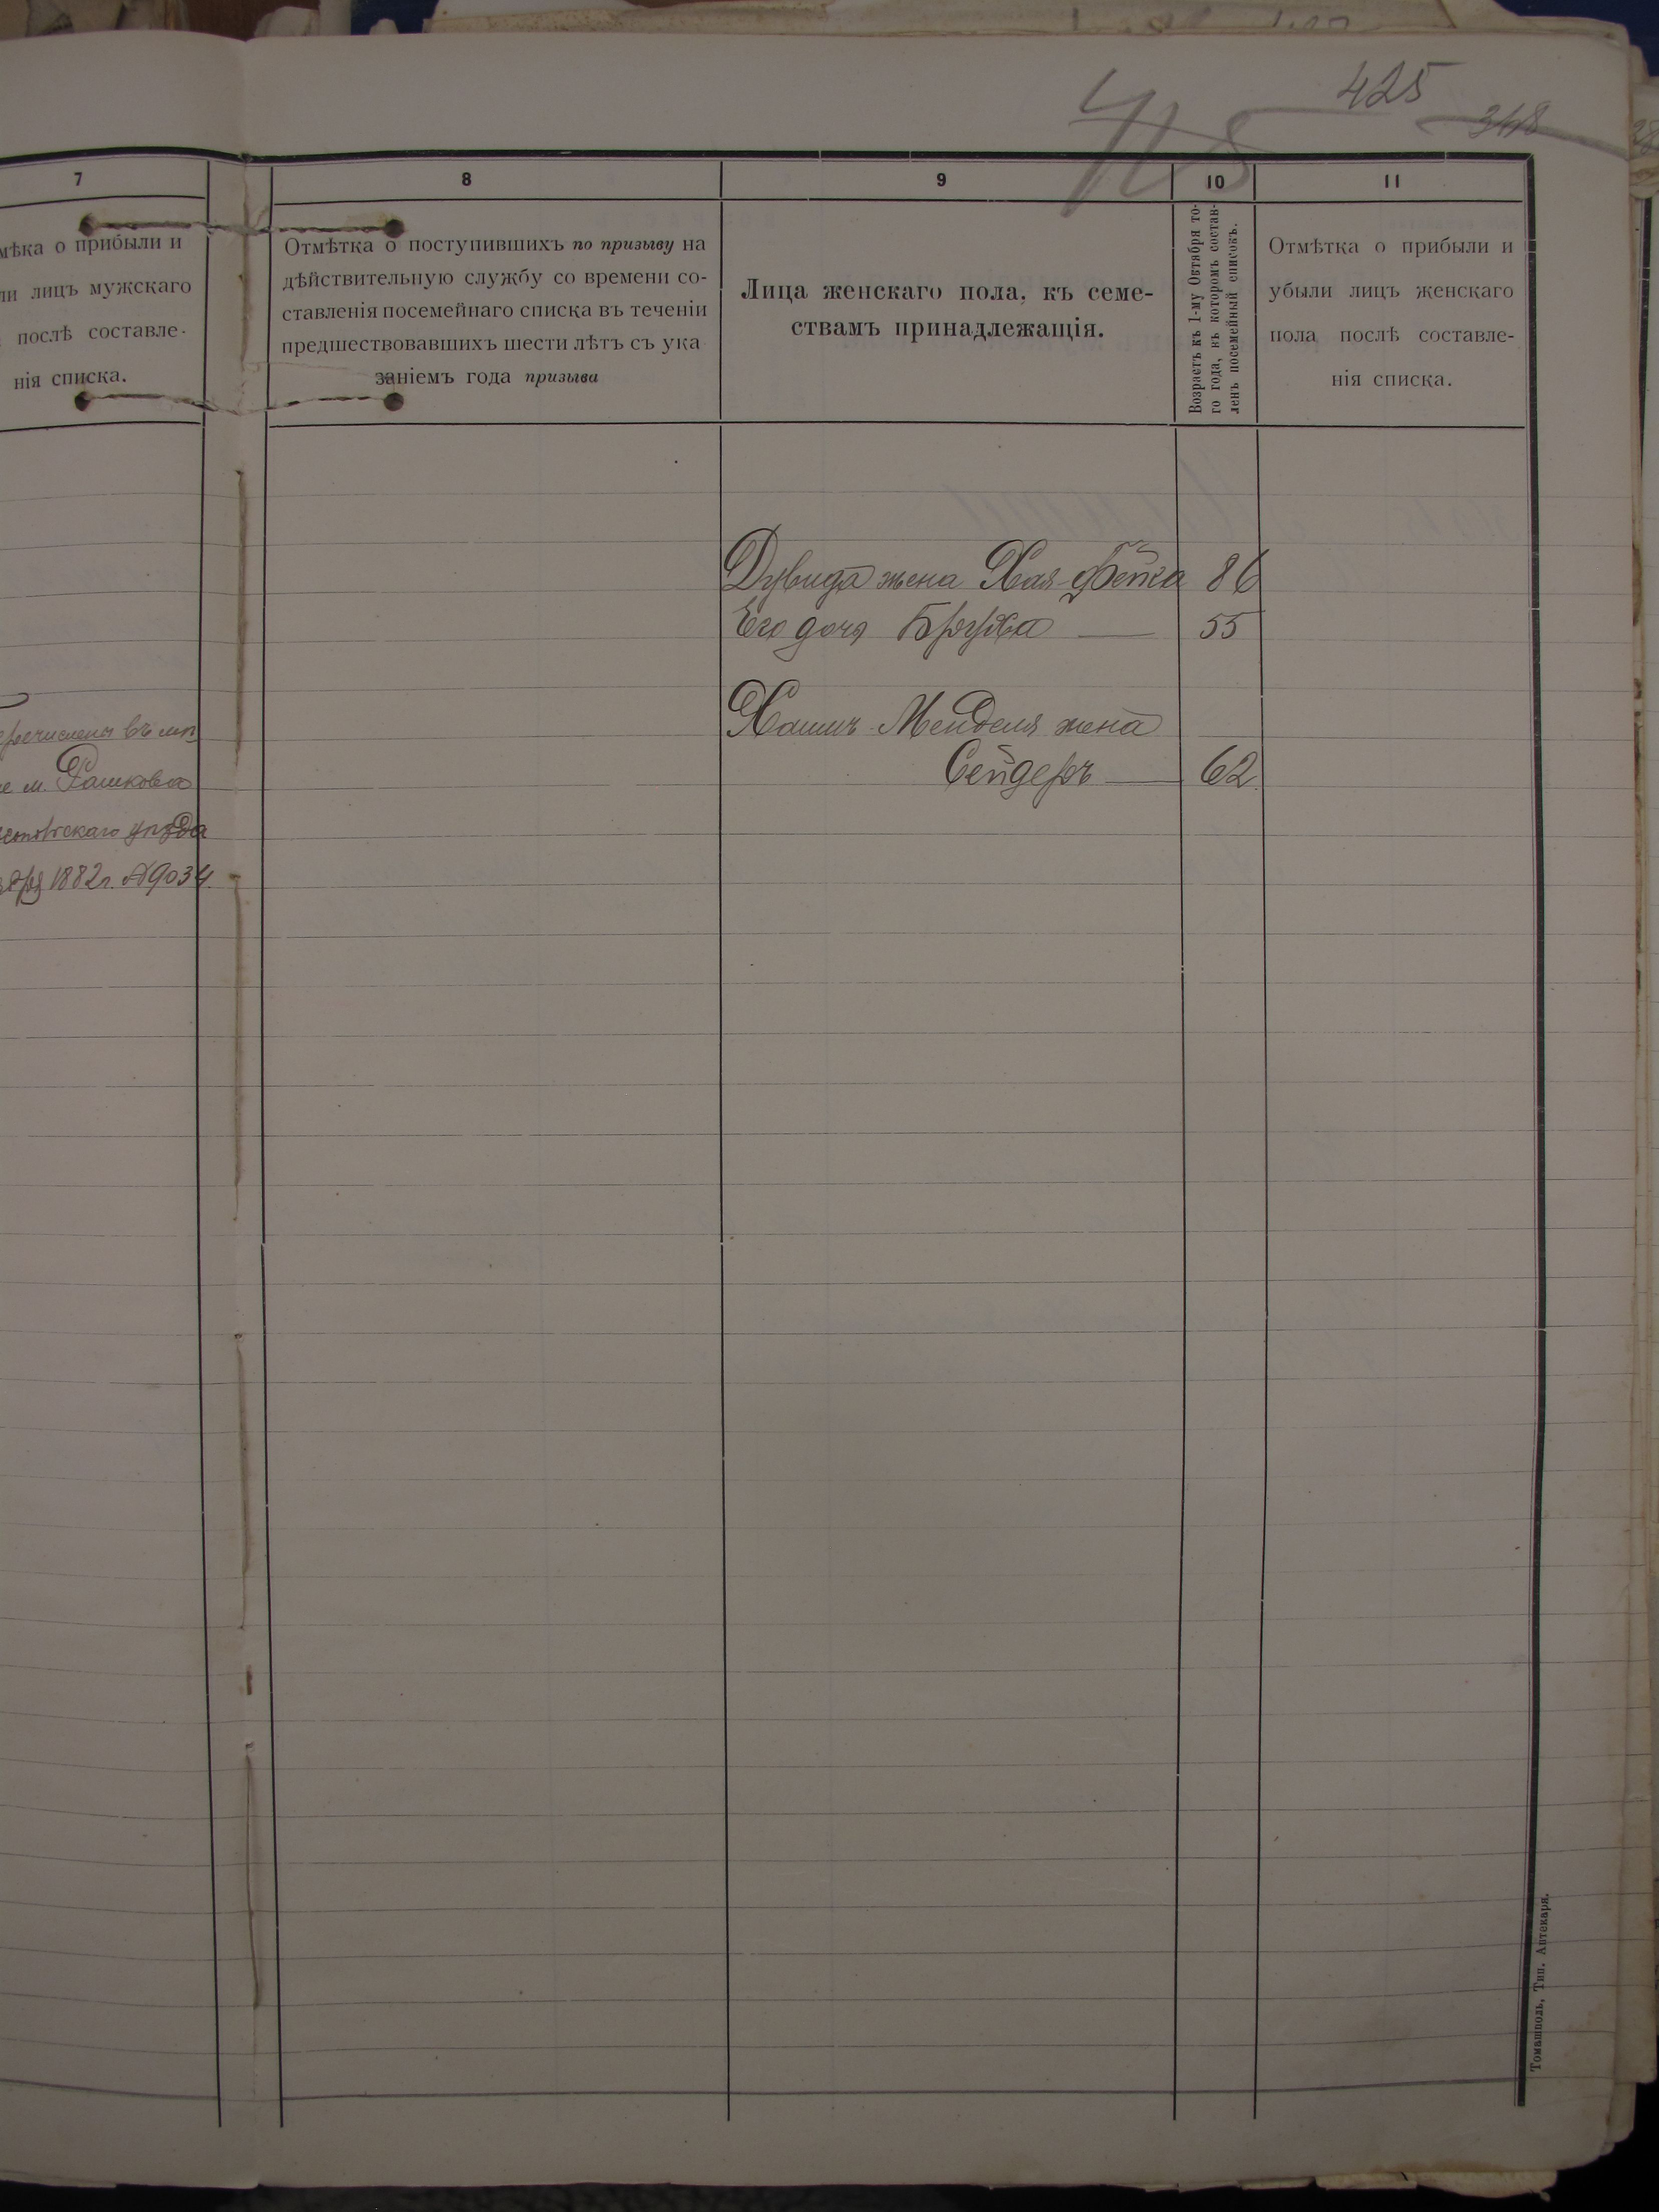 425
348
7
8
9
10
11
мѣка о прибыли и
ли лицъ мужскаго
послѣ составле-
нія списка.
Отмѣтка о поступившихъ по призыву на
дѣйствительную службу со времени со-
ставленія посемейнаго списка въ теченіи
предшествовавшихъ шести лѣтъ съ ука
заніемъ года призыва
Лица женскаго пола, къ семе-
ствамъ принадлежащія.
Возрастъ къ 1-му Октября то-
го года, къ которомъ состав-
ленъ посемейный списокъ.
Отмѣтка о прибыли и
убыли лицъ женскаго
пола послѣ составле-
нія списка.
Дувида жена Хая-Фейга 86
Его дочь Бруха — 55
Менделя жена
Сейдеръ — 62
речисленъ въ
е м. Рашкова
уѣзда
1882 г. №9034.
Томашполь, Тип. Аптекаря.